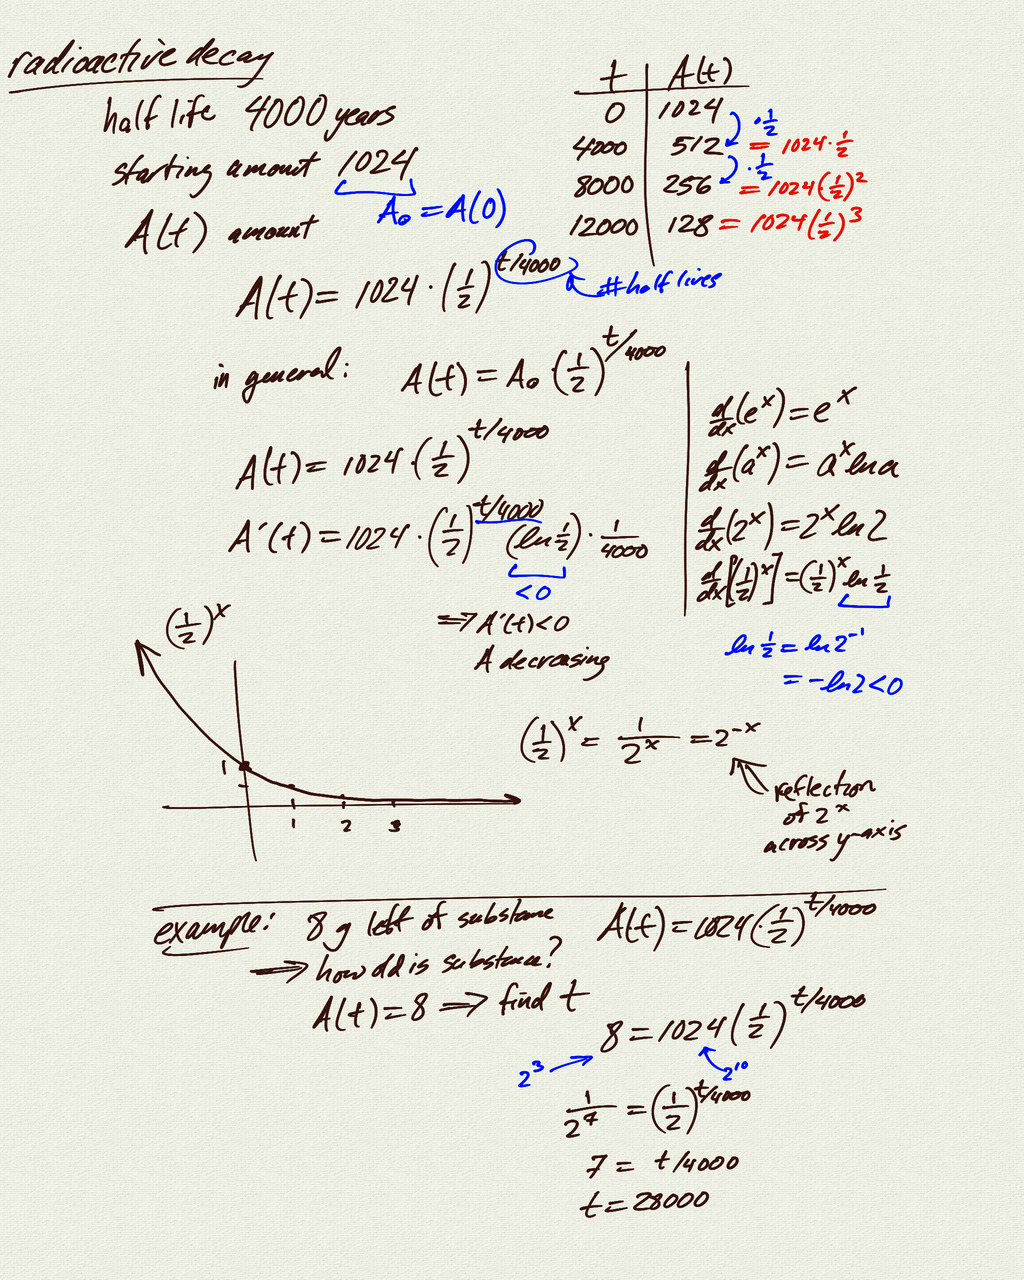 radioactive decay
half life 4000 years
starting amount 1024
A₀ = A(0)
A(t) amount
t | A(t)
0 | 1024
·½
4000 | 512 = 1024·½
·½
8000 | 256 = 1024(½)²
12000 | 128 = 1024(½)³
A(t) = 1024·(½)^(t/4000)
# half lives
in general: A(t) = A₀·(½)^(t/4000)
A(t) = 1024·(½)^(t/4000)
A′(t) = 1024·(½)^(t/4000) (ln ½)·1/4000
<0
⇒ A′(t)<0
A decreasing
d/dx(eˣ) = eˣ
d/dx(aˣ) = aˣ ln a
d/dx(2ˣ) = 2ˣ ln 2
d/dx[(½)ˣ] = (½)ˣ ln ½
ln ½ = ln 2⁻¹
= -ln 2 < 0
(½)ˣ
1
1 2 3
(½)ˣ = 1/2ˣ = 2⁻ˣ
reflection
of 2ˣ
across y-axis
example: 8 g left of substance
A(t) = 1024(½)^(t/4000)
⇒ how old is substance?
A(t) = 8 ⇒ find t
8 = 1024(½)^(t/4000)
2³ 2¹⁰
1/2⁷ = (½)^(t/4000)
7 = t/4000
t = 28000